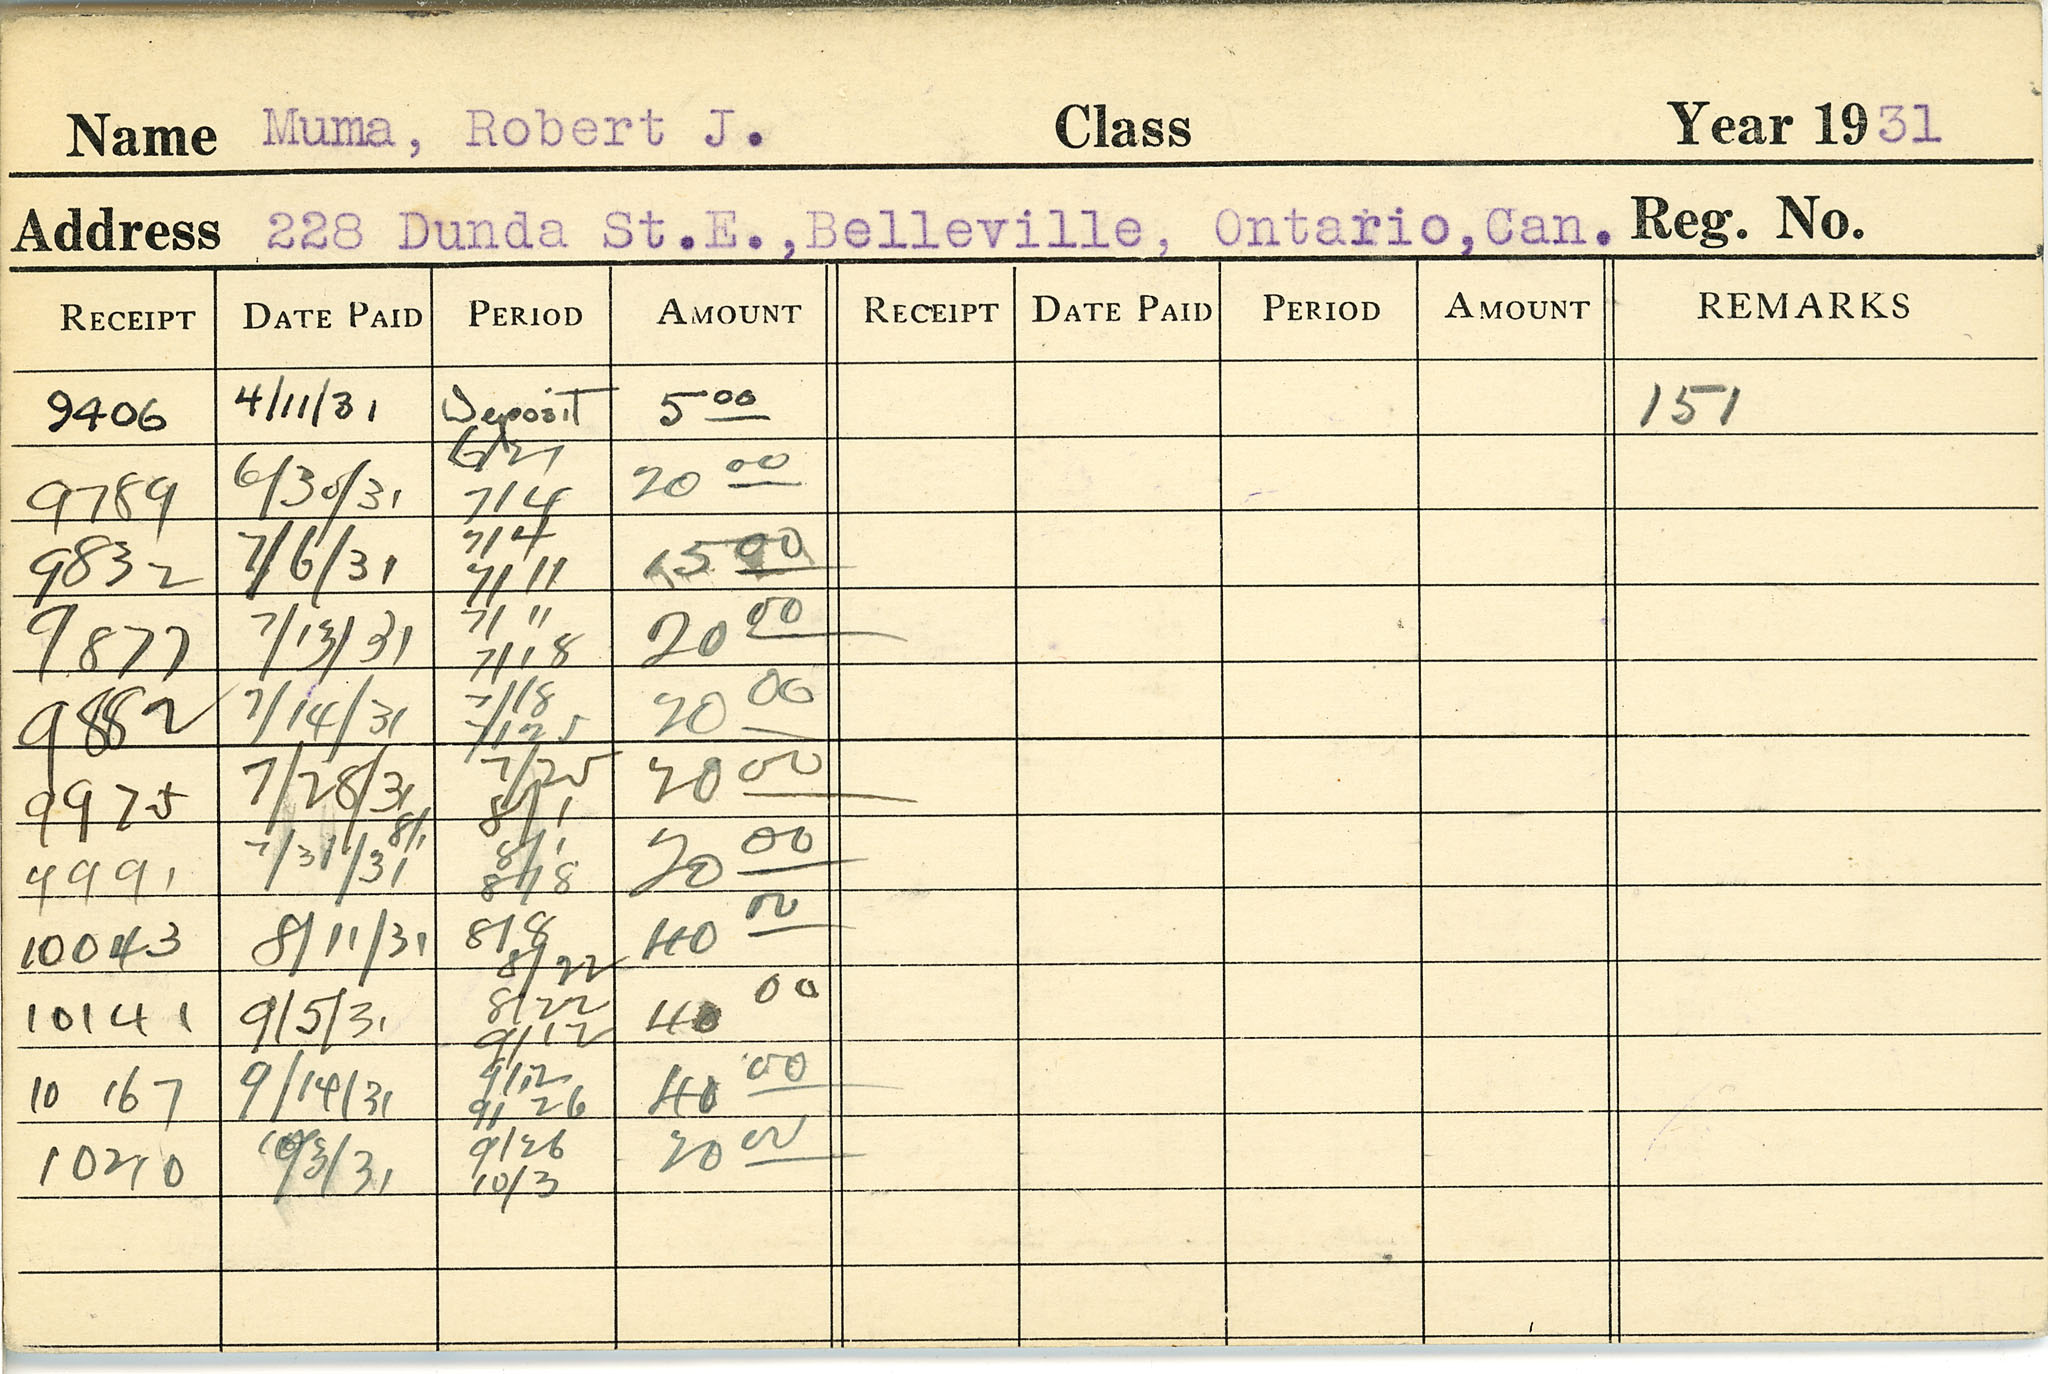 Name Muma, Robert J. Class Year 1931
Address 228 Dunda St.E.,Belleville, Ontario,Can. Reg. No.
RECEIPT DATE PAID PERIOD AMOUNT RECEIPT DATE PAID PERIOD AMOUNT REMARKS
9406 4/11/31 Deposit 5 00 151
6/27
9789 6/30/31 7/4 20 00
7/4
9832 7/6/31 7/11 15 00
7/11
9877 7/13/31 7/18 20 00
7/18
9882 7/14/31 7/25 20 00
7/25
9975 7/28/31 8/1 20 00
8/1 8/1
9991 7/31/31 8/8 20 00
8/8
10043 8/11/31 8/22 40 00
8/22
10141 9/5/31 9/12 40 00
9/12
10167 9/14/31 9/26 40 00
9/26
10210 10/3/31 10/3 20 00